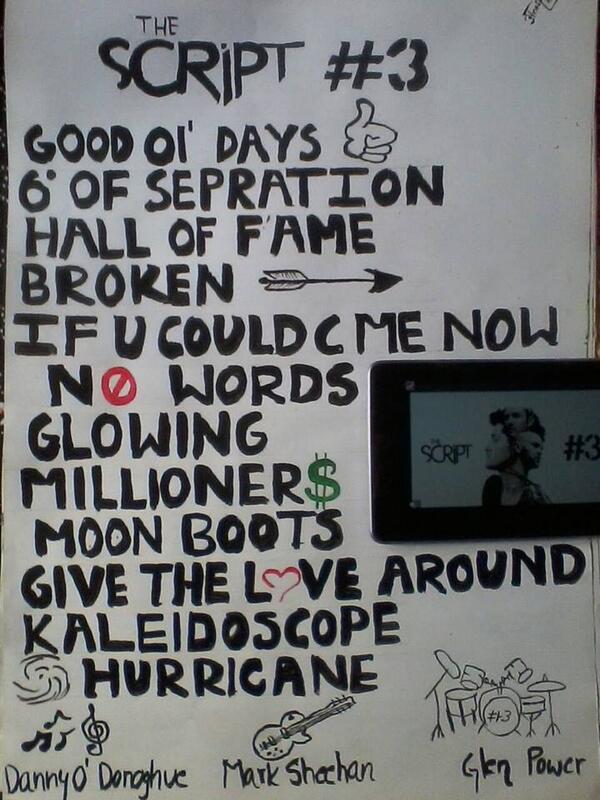 THE
SCRiPT #3
GOOD Ol' DAYS
6° OF SEPRATION
HALL OF FAME
BROKEN
IF U COULD C ME NOW
NO WORDS
GLOWING
MILLIONER$
MOON BOOTS
GIVE THE LOVE AROUND
KALEIDOSCOPE
HURRICANE
THE
SCRIPT #3
#3
Danny O' Donoghue Mark Sheehan Glen Power